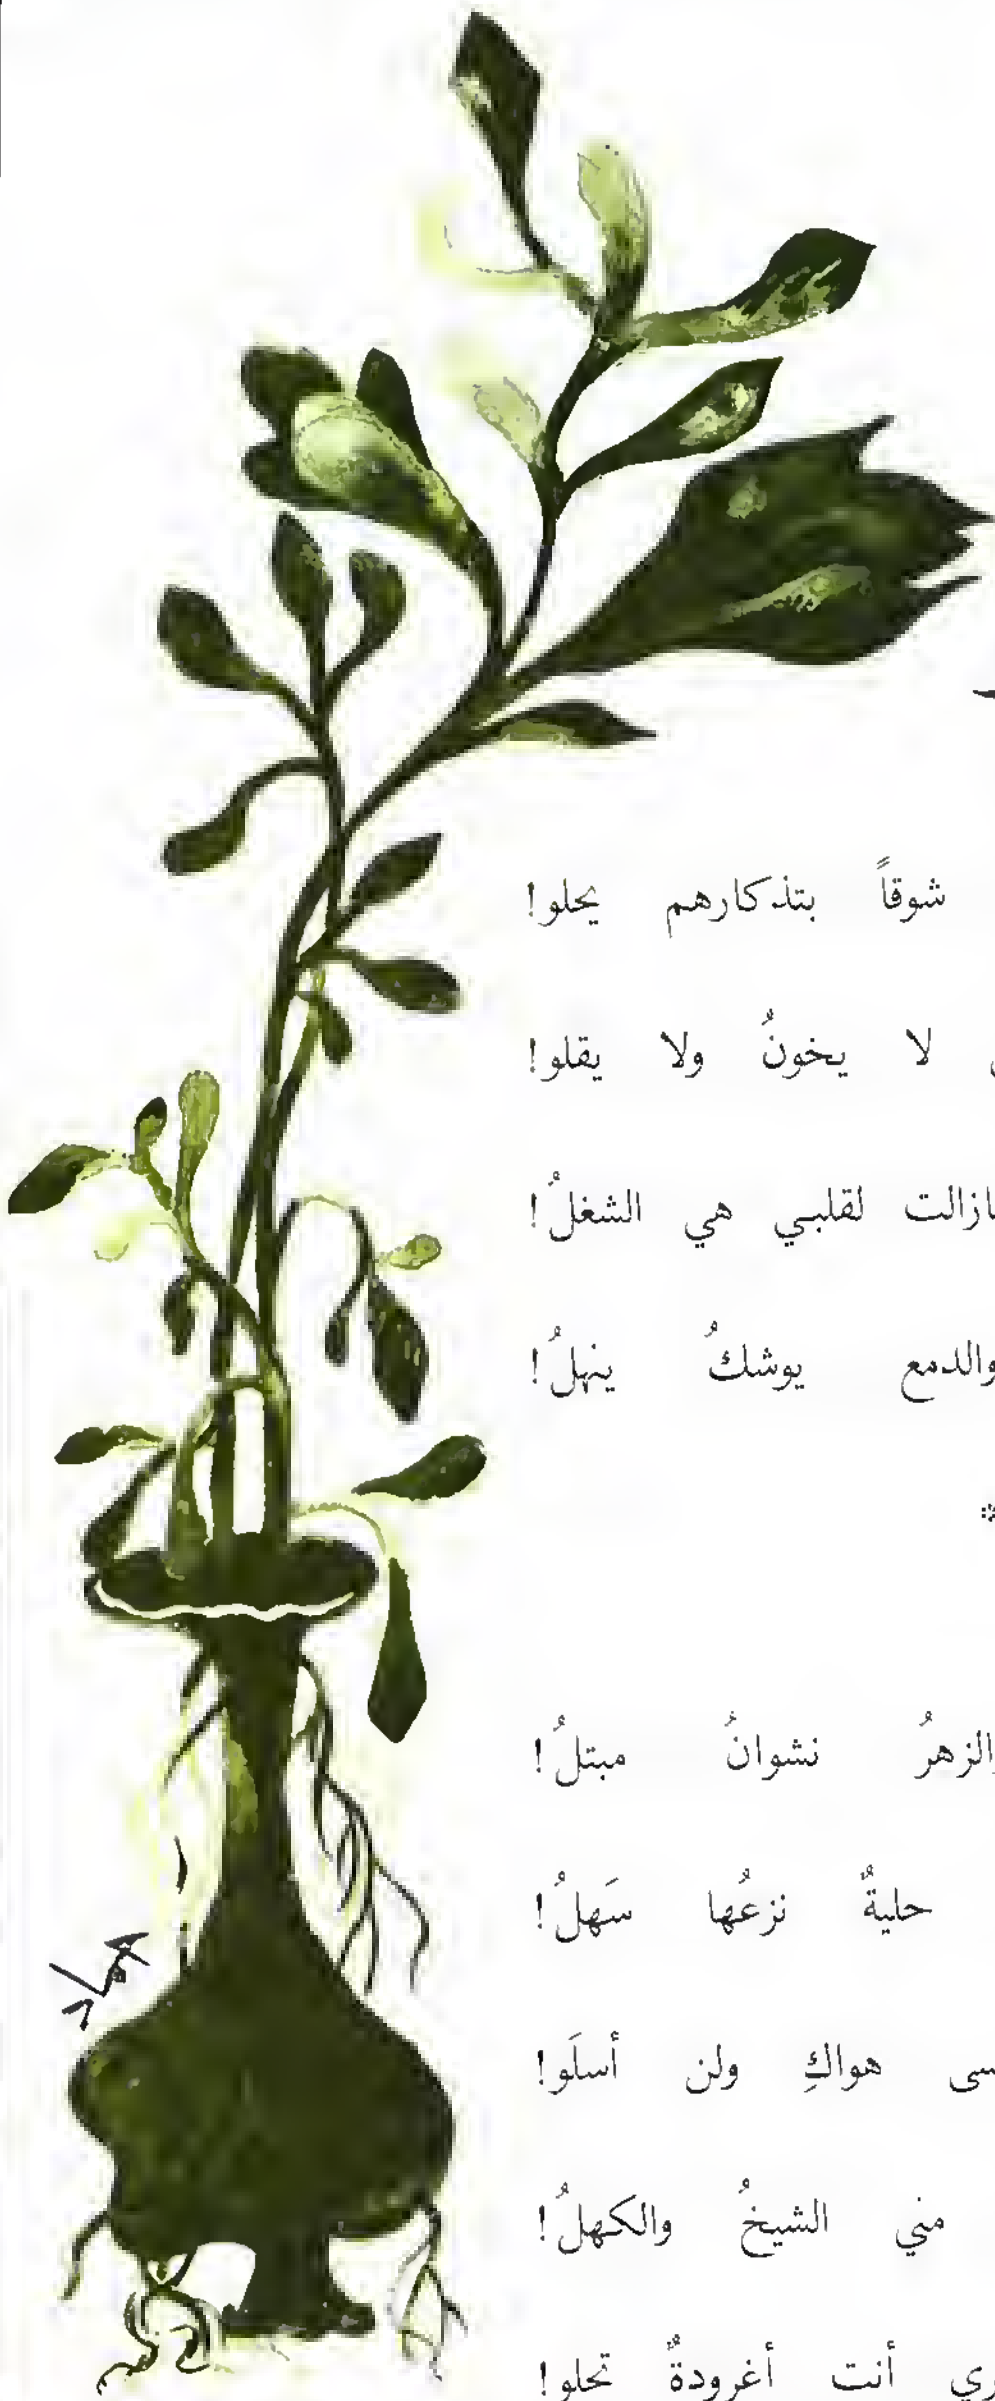 شوقاً بتذكارهم يحلو!
لا يخونُ ولا يقلو!
لقلبي هي الشغلُ!
والدمع يوشكُ ينهلُ!
*
والزهرُ نشوانُ مبتلُ!
حليةٌ نزعُها سَهلُ!
هواكِ ولن أسلَو!
مني الشيخُ والكهلُ!
أنت أغرودةٌ تحلو!